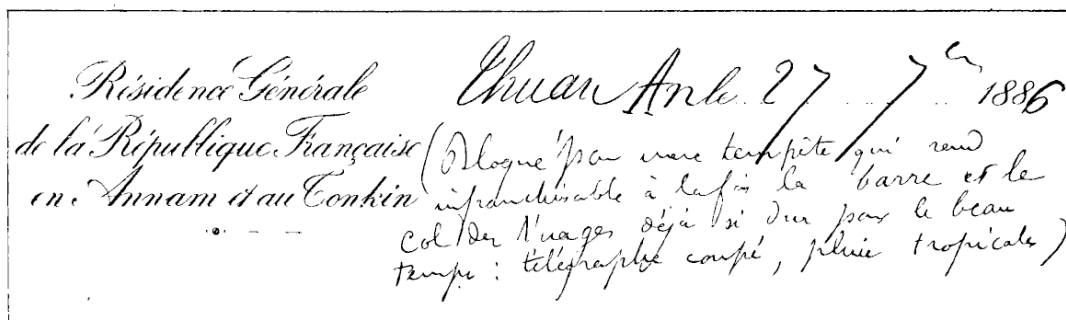 Résidence Générale
de la République Française
en Annam et au Tonkin
Thuan An le 27 7bre 1886
(Bloqué par une tempête qui rend
infranchissable à la fois la barre et le
col des Nuages déjà si dur par le beau
temps : télégraphe coupé, pluie tropicale)